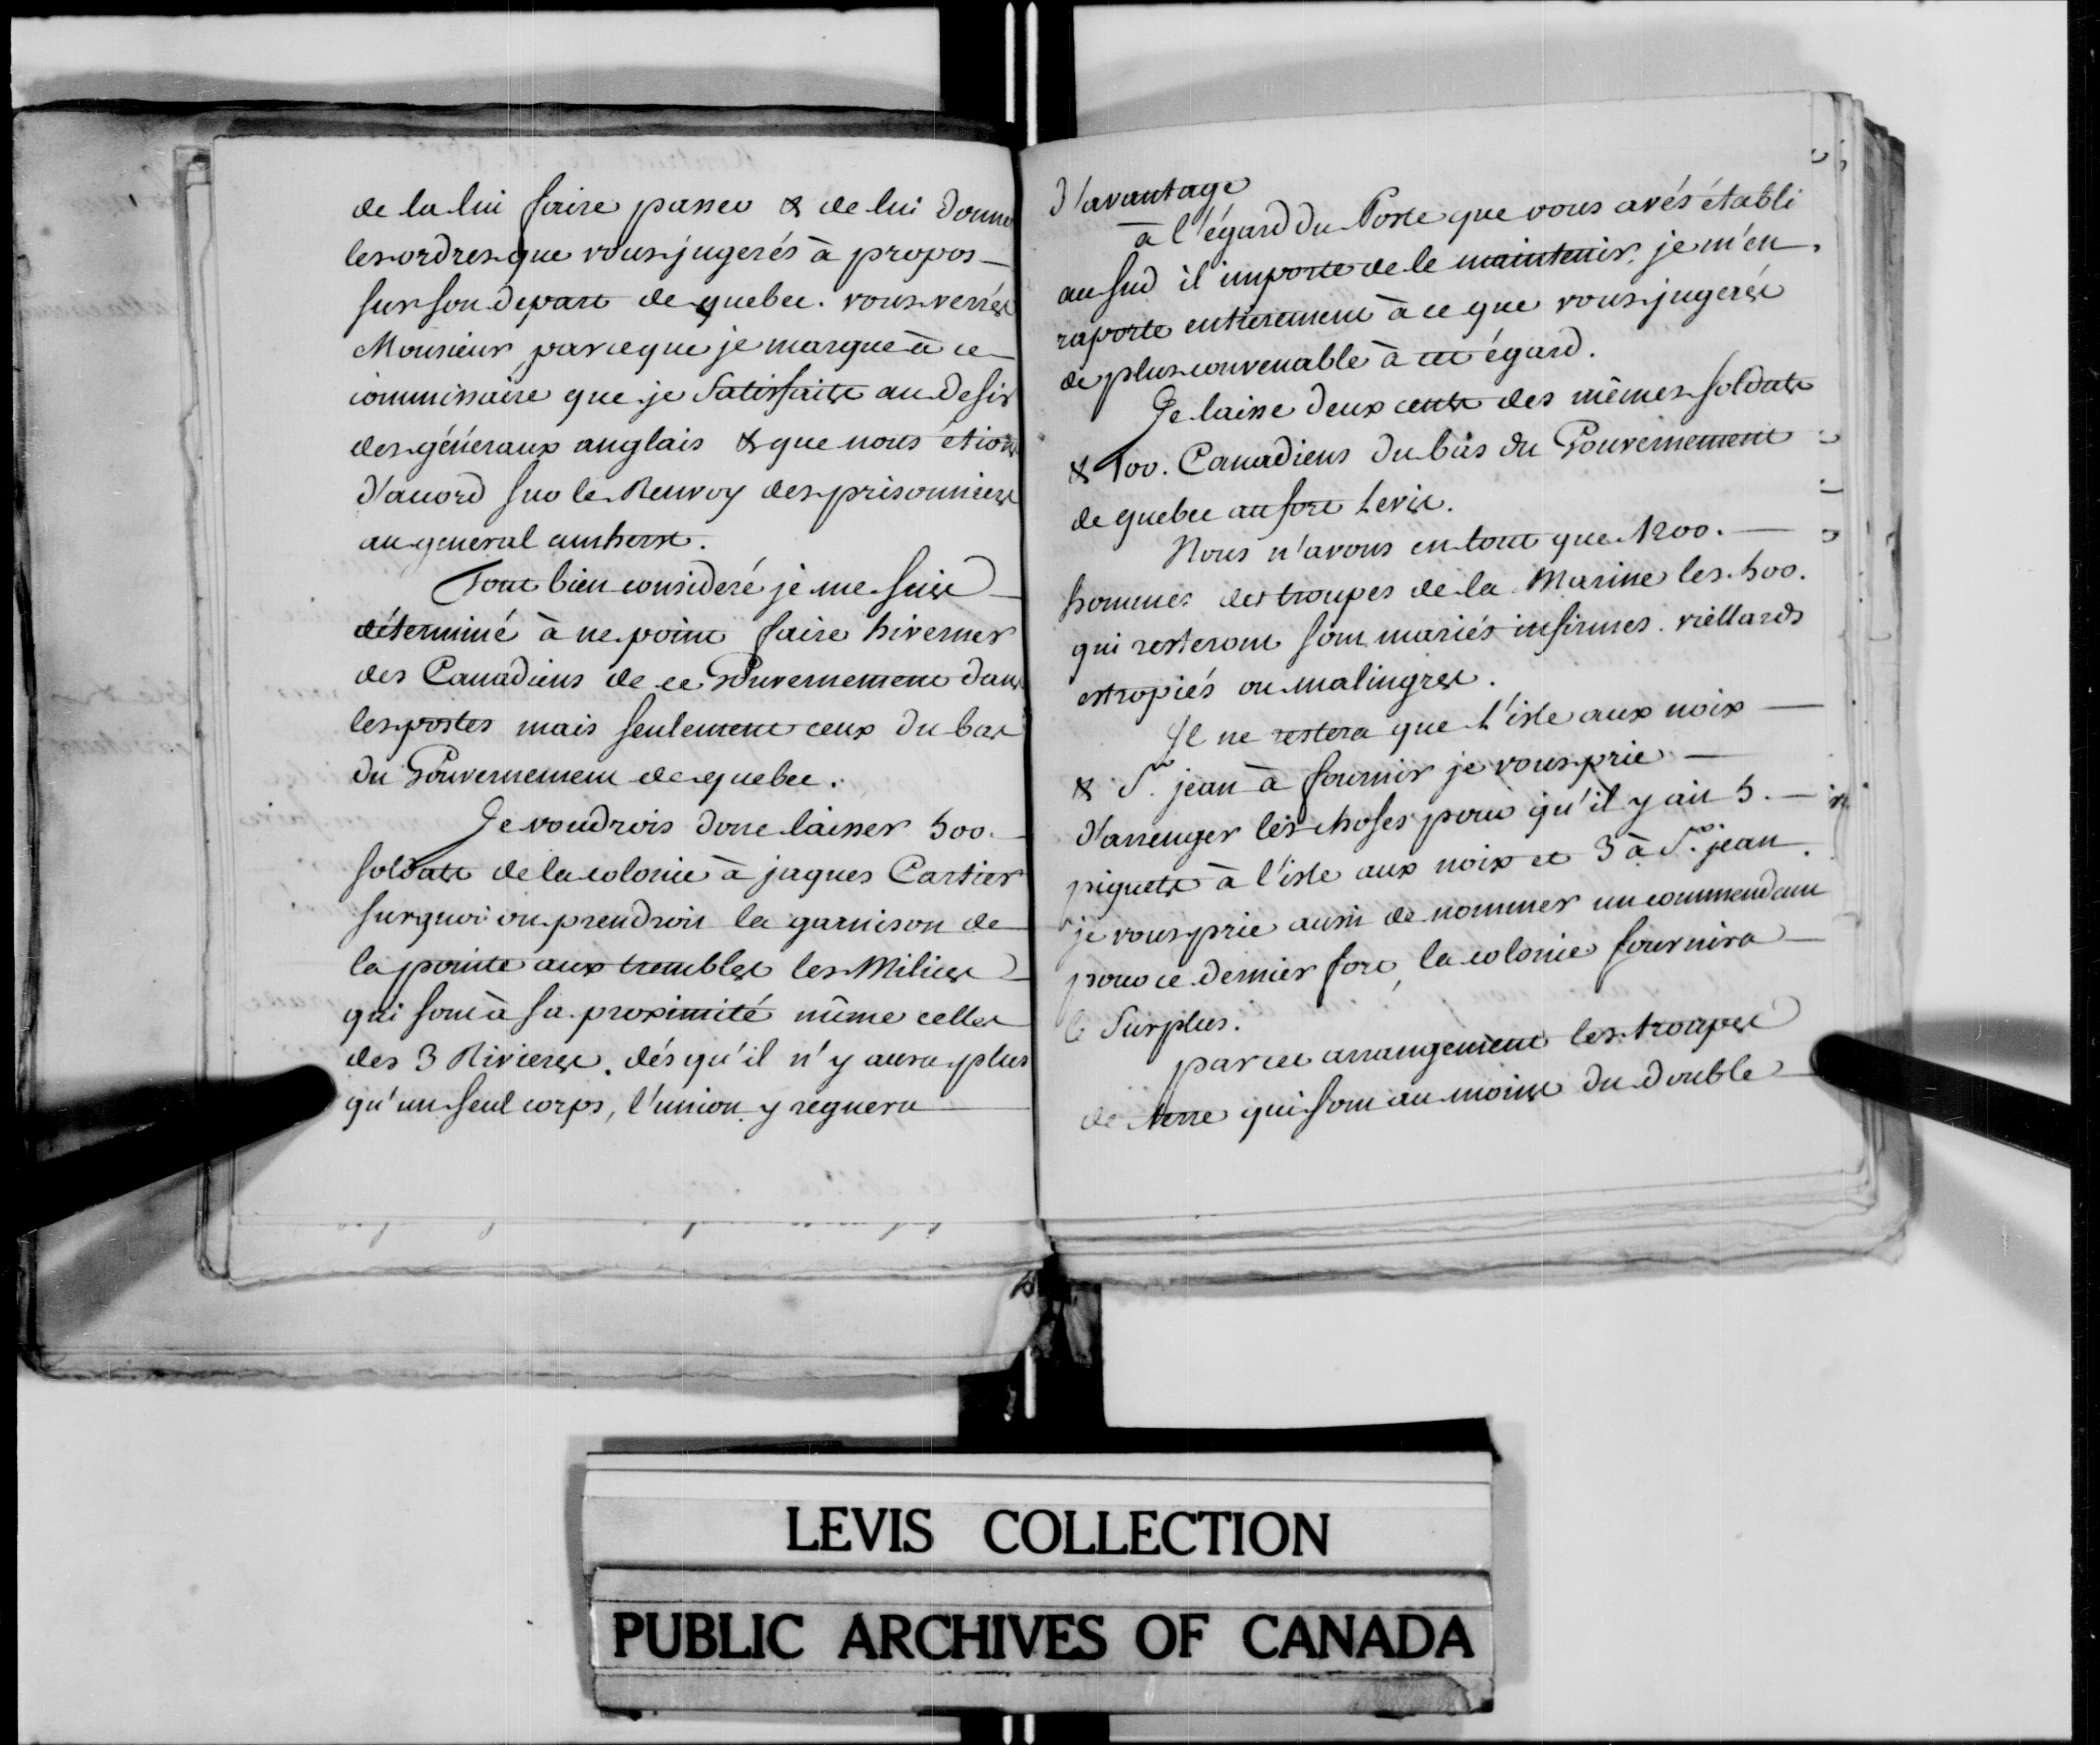 de la lui faire passer & de lui donner
les ordres que vous jugerés à propos
sur son depart de quebec. vous verrés
Monsieur par ce que je marque à ce
commissaire que je satisfaits au desir
des géneraux anglais & que nous étions
d'acord sur le Renvoy des prisonniers
au general amherst.
Tout bien consideré je me suis
déterminé à ne point faire hiverner
des Canadiens de ce Gouvernement dans
les postes mais seulement ceux du bas
du Gouvernement de quebec.
Je voudrois donc laisser 500.
soldats de la colonie à jaques Cartier
surquoi on prendroit la garnison de
la pointe aux trembles les Milices
qui sont à sa proximité même celles
des 3 Rivieres. dés qu'il n'y aura plus
qu'un seul corps, l'union y regnera
d'avantage
à l'égard du Poste que vous avés établi
au sud il importe de le maintenir. je m'en
raporte entierement à ce que vous jugerés
de plus convenable à cet égard.
Je laisse deux cents des mêmes soldats
& 100. Canadiens du bas du Gouvernement
de quebec au fort Levis.
Nous n'avons en tout que 1200.
hommes des troupes de la Marine les 500.
qui resteront sont mariés infirmes. viellards
estropiés ou malingres.
Il ne restera que L'isle aux noix
& St. jean à fournir je vous prie
d'arrenger les choses pour qu'il y ait 5.
piquets à l'isle aux noix et 3 à St. jean.
je vous prie aussi de nommer un commendant
pour ce dernier fort, la colonie fournira
le surplus.
par cet arrangement les troupes
de terre qui sont au moins du double
LEVIS COLLECTION
PUBLIC ARCHIVES OF CANADA